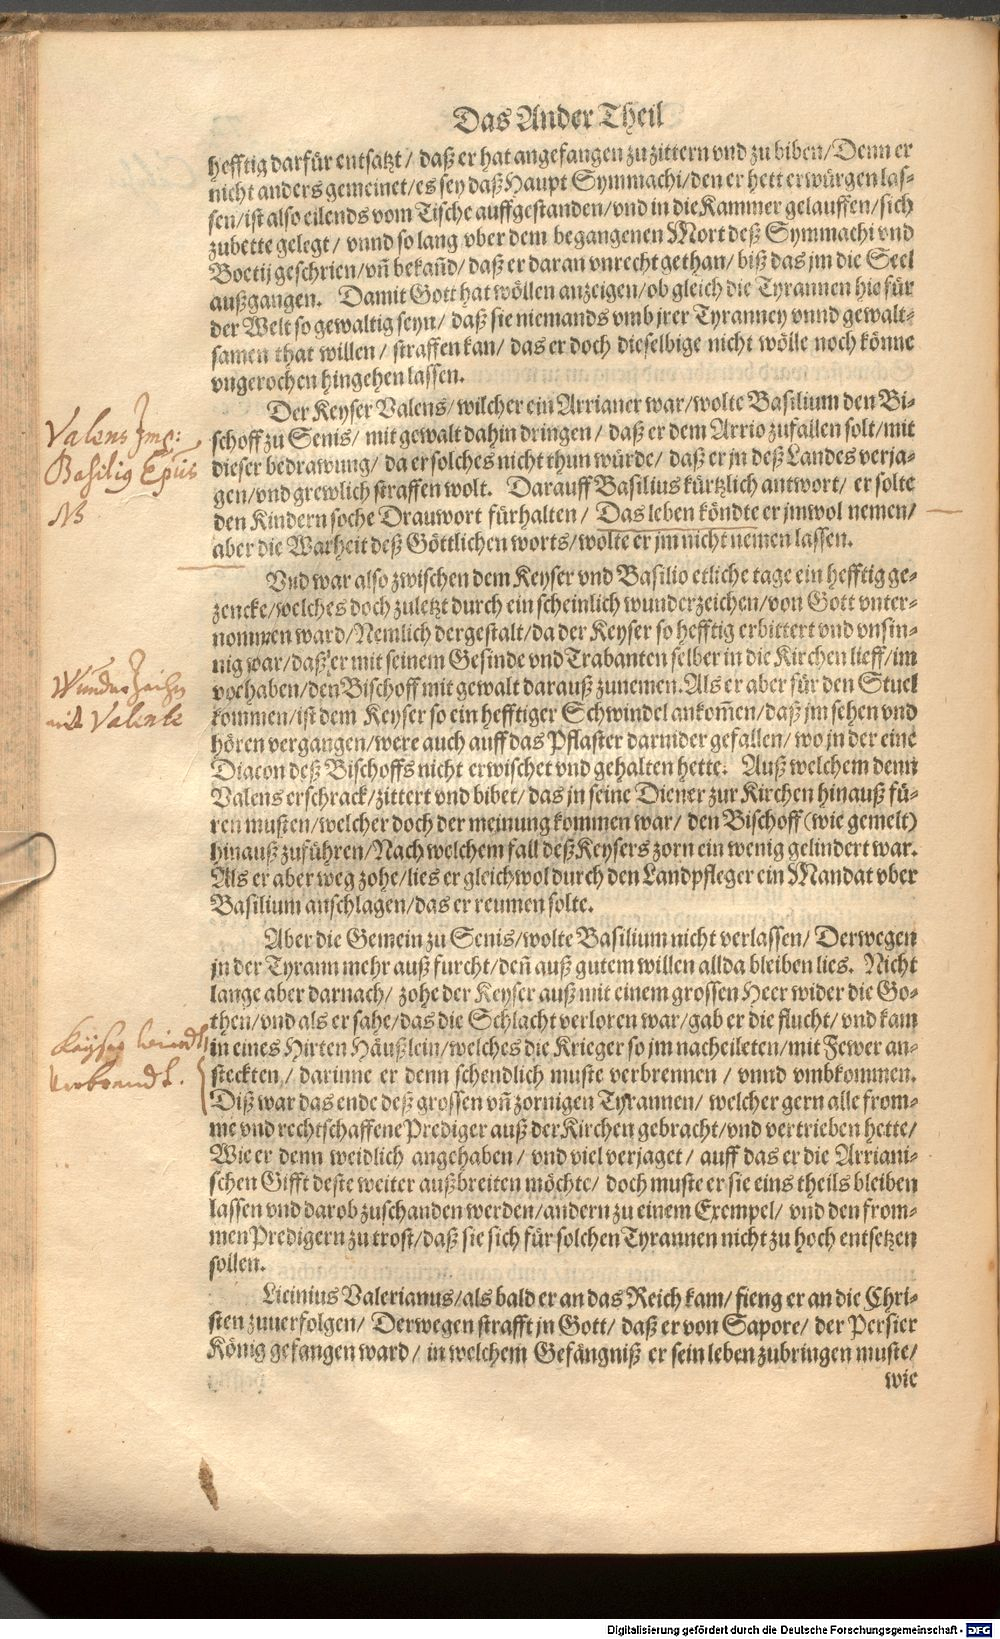 Das Ander Theil
hefftig darfür entsatzt / daß er hat angefangen zu zittern vnd zu biben / Denn er
nicht anders gemeinet / es sey daß Haupt Symmachi / den er hett erwürgen las-
sen / ist also eilends vom Tische auffgestanden / vnd in die Kammer gelauffen / sich
zubette gelegt / vnnd so lang vber dem begangenen Mort deß Symmachi vnd
Boetij geschrien / vñ bekañd / daß er daran vnrecht gethan / biß das jm die Seel
außgangen. Damit Gott hat wöllen anzeigen / ob gleich die Tyrannen hie für
der Welt so gewaltig seyn / daß sie niemands vmb jrer Tyranney vnnd gewalt-
samen that willen / straffen kan / das er doch dieselbige nicht wölle noch könne
vngerochen hingehen lassen.
Der Keyser Valens / wilcher ein Arrianer war / wolte Basilium den Bi-
schoff zu Senis / mit gewalt dahin dringen / daß er dem Arrio zufallen solt / mit
dieser bedrawung / da er solches nicht thun würde / daß er jn deß Landes verja-
gen / vnd grewlich straffen wolt. Darauff Basilius kürtzlich antwort / er solte
den Kindern soche Drauwort fürhalten / Das leben köndte er jm wol nemen /
aber die Warheit deß Göttlichen worts / wolte er jm nicht nemen lassen.
Valens Imp:
Basilig Epūs
NB
Vnd war also zwischen dem Keyser vnd Basilio etliche tage ein hefftig ge-
zencke / welches doch zuletzt durch ein scheinlich wunderzeichen / von Gott vnter-
nommen ward / Nemlich dergestalt / da der Keyser so hefftig erbittert vnd vnsin-
nig war / daß er mit seinem Gesinde vnd Trabanten selber in die Kirchen lieff / im
vorhaben / den Bischoff mit gewalt darauß zunemen. Als er aber für den Stuel
kommen / ist dem Keyser so ein hefftiger Schwindel ankom̄en / daß jm sehen vnd
hören vergangen / were auch auff das Pflaster darnider gefallen / wo jn der eine
Diacon deß Bischoffs nicht erwischet vnd gehalten hette. Auß welchem denn
Valens erschrack / zittert vnd bibet / das jn seine Diener zur Kirchen hinauß fü-
ren musten / welcher doch der meinung kommen war / den Bischoff (wie gemelt)
hinauß zuführen / Nach welchem fall deß Keysers zorn ein wenig gelindert war.
Als er aber weg zohe / lies er gleichwol durch den Landpfleger ein Mandat vber
Basilium anschlagen / das er reumen solte.
Wunder Zeichen
mit Valente
Aber die Gemein zu Senis / wolte Basilium nicht verlassen / Derwegen
jn der Tyrann mehr auß furcht / deñ auß gutem willen allda bleiben lies. Nicht
lange aber darnach / zohe der Keyser auß mit einem grossen Heer wider die Go-
then / vnd als er sahe / das die Schlacht verloren war / gab er die flucht / vnd kam
in eines Hirten Häußlein / welches die Krieger so jm nacheileten / mit Fewer an-
steckten / darinne er denn schendlich muste verbrennen / vnnd vmbkommen.
Diß war das ende deß grossen vñ zornigen Tyrannen / welcher gern alle from-
me vnd rechtschaffene Prediger auß der Kirchen gebracht / vnd vertrieben hette /
Wie er denn weidlich angehaben / vnd viel verjaget / auff das er die Arriani-
schen Gifft deste weiter außbreiten möchte / doch muste er sie eins theils bleiben
lassen vnd darob zuschanden werden / andern zu einem Exempel / vnd den from-
men Predigern zu trost / daß sie sich für solchen Tyrannen nicht zu hoch entsetzen
sollen.
Keyser
Verbrandt.
Licinius Valerianus / als bald er an das Reich kam / fieng er an die Chri-
sten zuuerfolgen / Derwegen strafft jn Gott / daß er von Sapore / der Persier
König gefangen ward / in welchem Gefängniß er sein leben zubringen muste /
wie
Digitalisierung gefördert durch die Deutsche Forschungsgemeinschaft - DFG